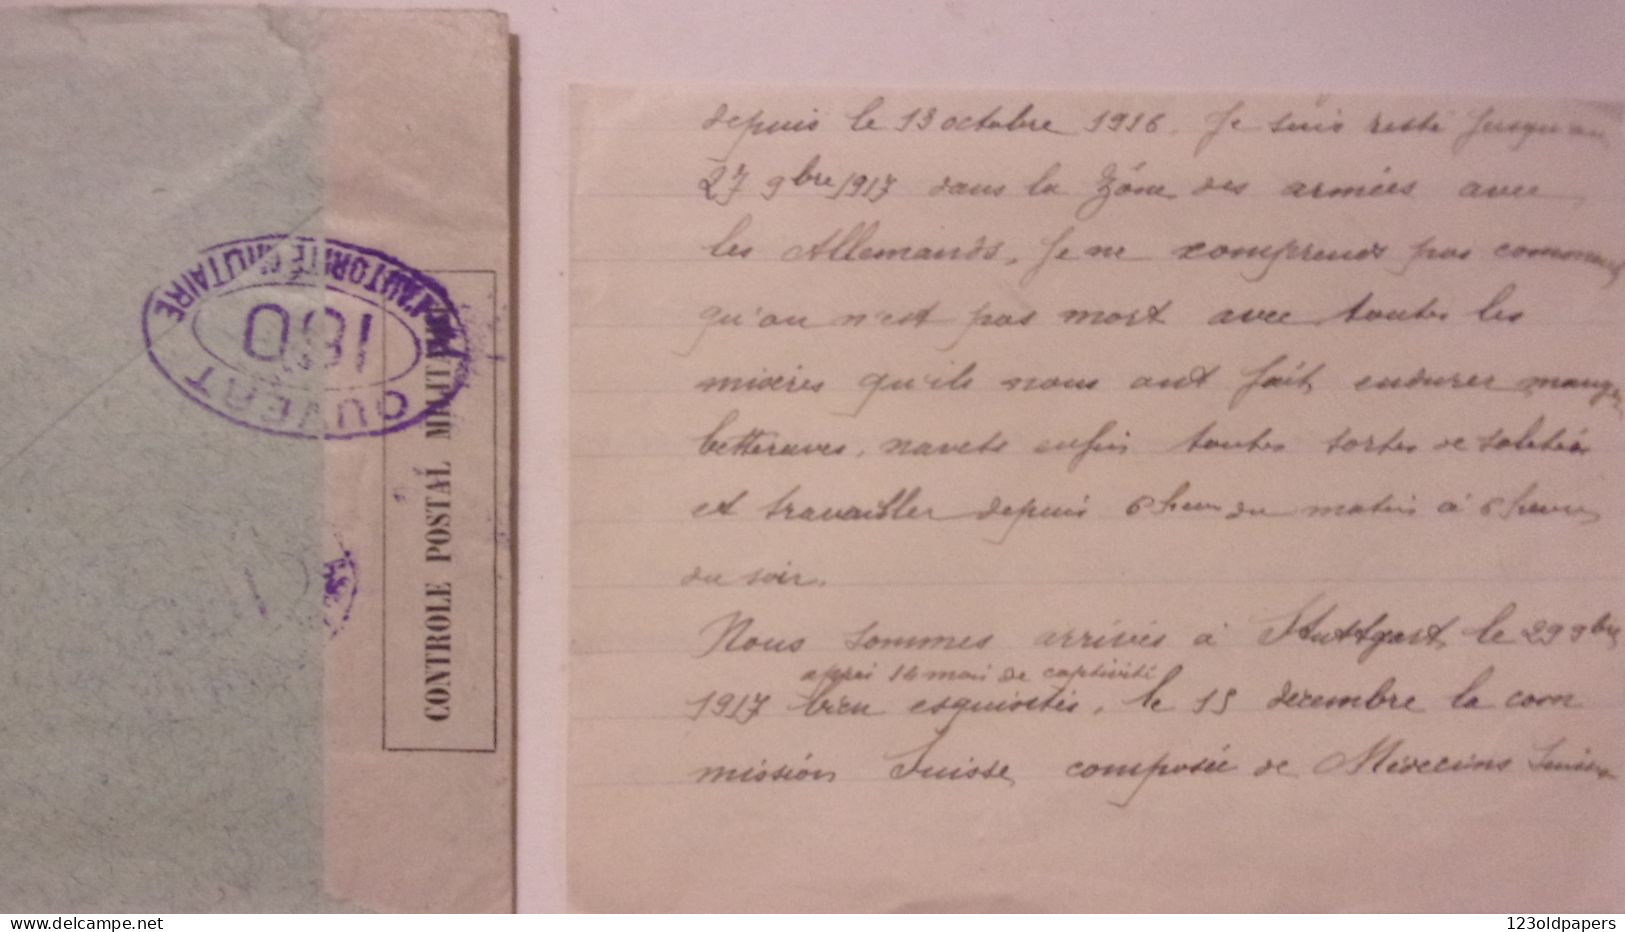 OUVERT
PAR L'AUTORITÉ MILITAIRE
180
CONTROLE POSTAL MILITAIRE
depuis le 13 octobre 1916. Je suis resté jusqu'au
27 9bre 1917 dans la Zône des armées avec
les Allemands, Je ne comprends pas comment
qu'on n'est pas mort avec toutes les
misères qu'ils nous ont fait endurer manger
betteraves, navets enfin toutes sortes de saletées
et travailler depuis 6 heures du matin à 6 heures
du soir.
Nous sommes arrivés à Stuttgart le 29 9bre
après 14 mois de captivité
1917 bien esquintés, le 15 décembre la com
mission Suisse composée de Médecins Suisses
www.delcampe.net
123oldpapers